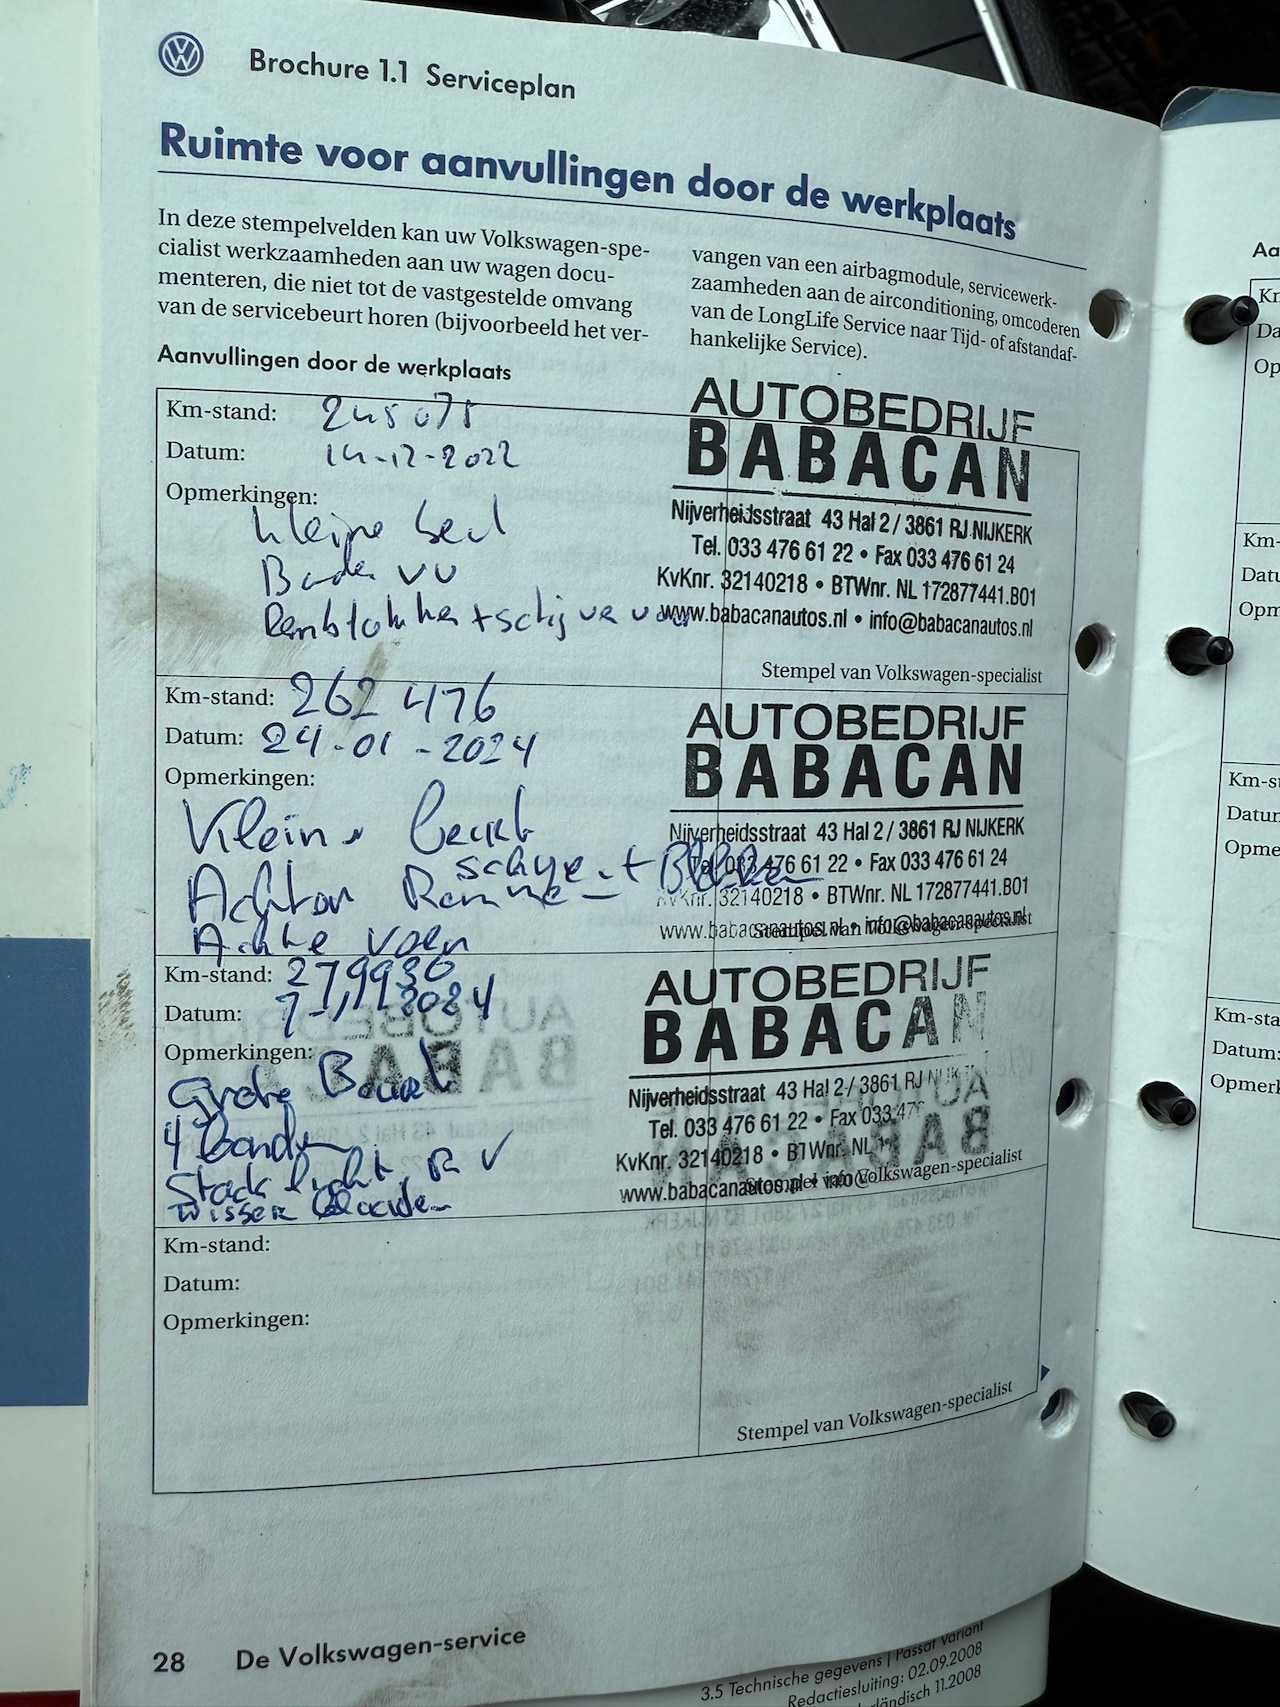 Brochure 1.1 Serviceplan
Ruimte voor aanvullingen door de werkplaats
In deze stempelvelden kan uw Volkswagen-spe-
cialist werkzaamheden aan uw wagen docu-
menteren, die niet tot de vastgestelde omvang
van de servicebeurt horen (bijvoorbeeld het ver-
vangen van een airbagmodule, servicewerk-
zaamheden aan de airconditioning, omcoderen
van de LongLife Service naar Tijd- of afstandaf-
hankelijke Service).
Aanvullingen door de werkplaats
Km-stand: 245075
Datum: 14-12-2022
Opmerkingen:
kleine
VV
Remblokken + schijve voor
AUTOBEDRIJF
BABACAN
Nijverheidsstraat 43 Hal 2 / 3861 RJ NIJKERK
Tel. 033 476 61 22 • Fax 033 476 61 24
KvKnr. 32140218 • BTWnr. NL 172877441.B01
www.babacanautos.nl • info@babacanautos.nl
Stempel van Volkswagen-specialist
Km-stand: 262 476
Datum: 24-01-2024
Opmerkingen:
Kleine beurt
schyve +
Achter Remme
Achte
AUTOBEDRIJF
BABACAN
Nijverheidsstraat 43 Hal 2 / 3861 RJ NIJKERK
Tel. 033 476 61 22 • Fax 033 476 61 24
KvKnr. 32140218 • BTWnr. NL 172877441.B01
www.babacanautos.nl • info@babacanautos.nl
Stempel van Volkswagen-specialist
Km-stand: 279930
Datum: 2024
Opmerkingen:
Grote Beurt
4 banden
licht R V
wisser
AUTOBEDRIJF
BABACAN
Nijverheidsstraat 43 Hal 2 / 3861 RJ
Tel. 033 476 61 22 • Fax 033 476
KvKnr. 32140218 • BTWnr. NL
www.babacanautos.nl • info@
Stempel van Volkswagen-specialist
Km-stand:
Datum:
Opmerkingen:
Stempel van Volkswagen-specialist
28 De Volkswagen-service
3.5 Technische gegevens | Passat Variant
Redactiesluiting: 02.09.2008
11.2008
Km-
Datum:
Km-sta
Datum: